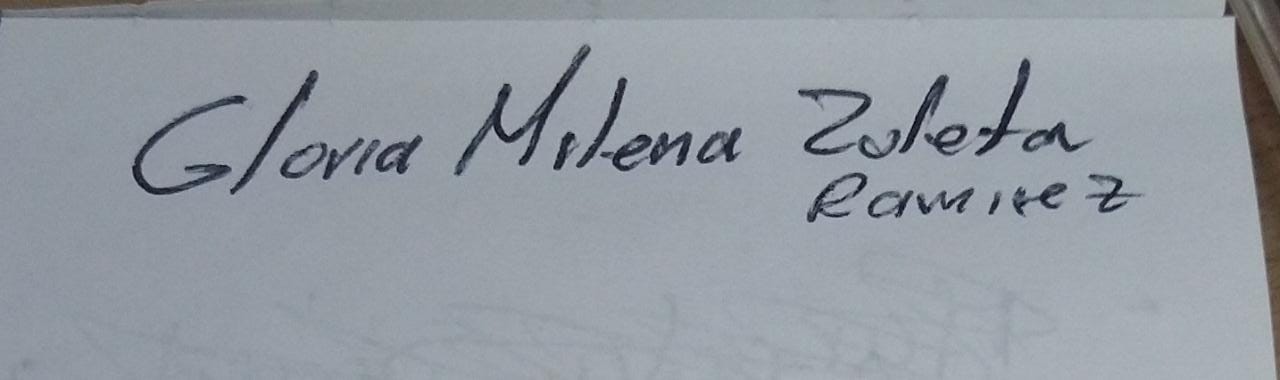 Gloria Milena Zuleta
Ramirez